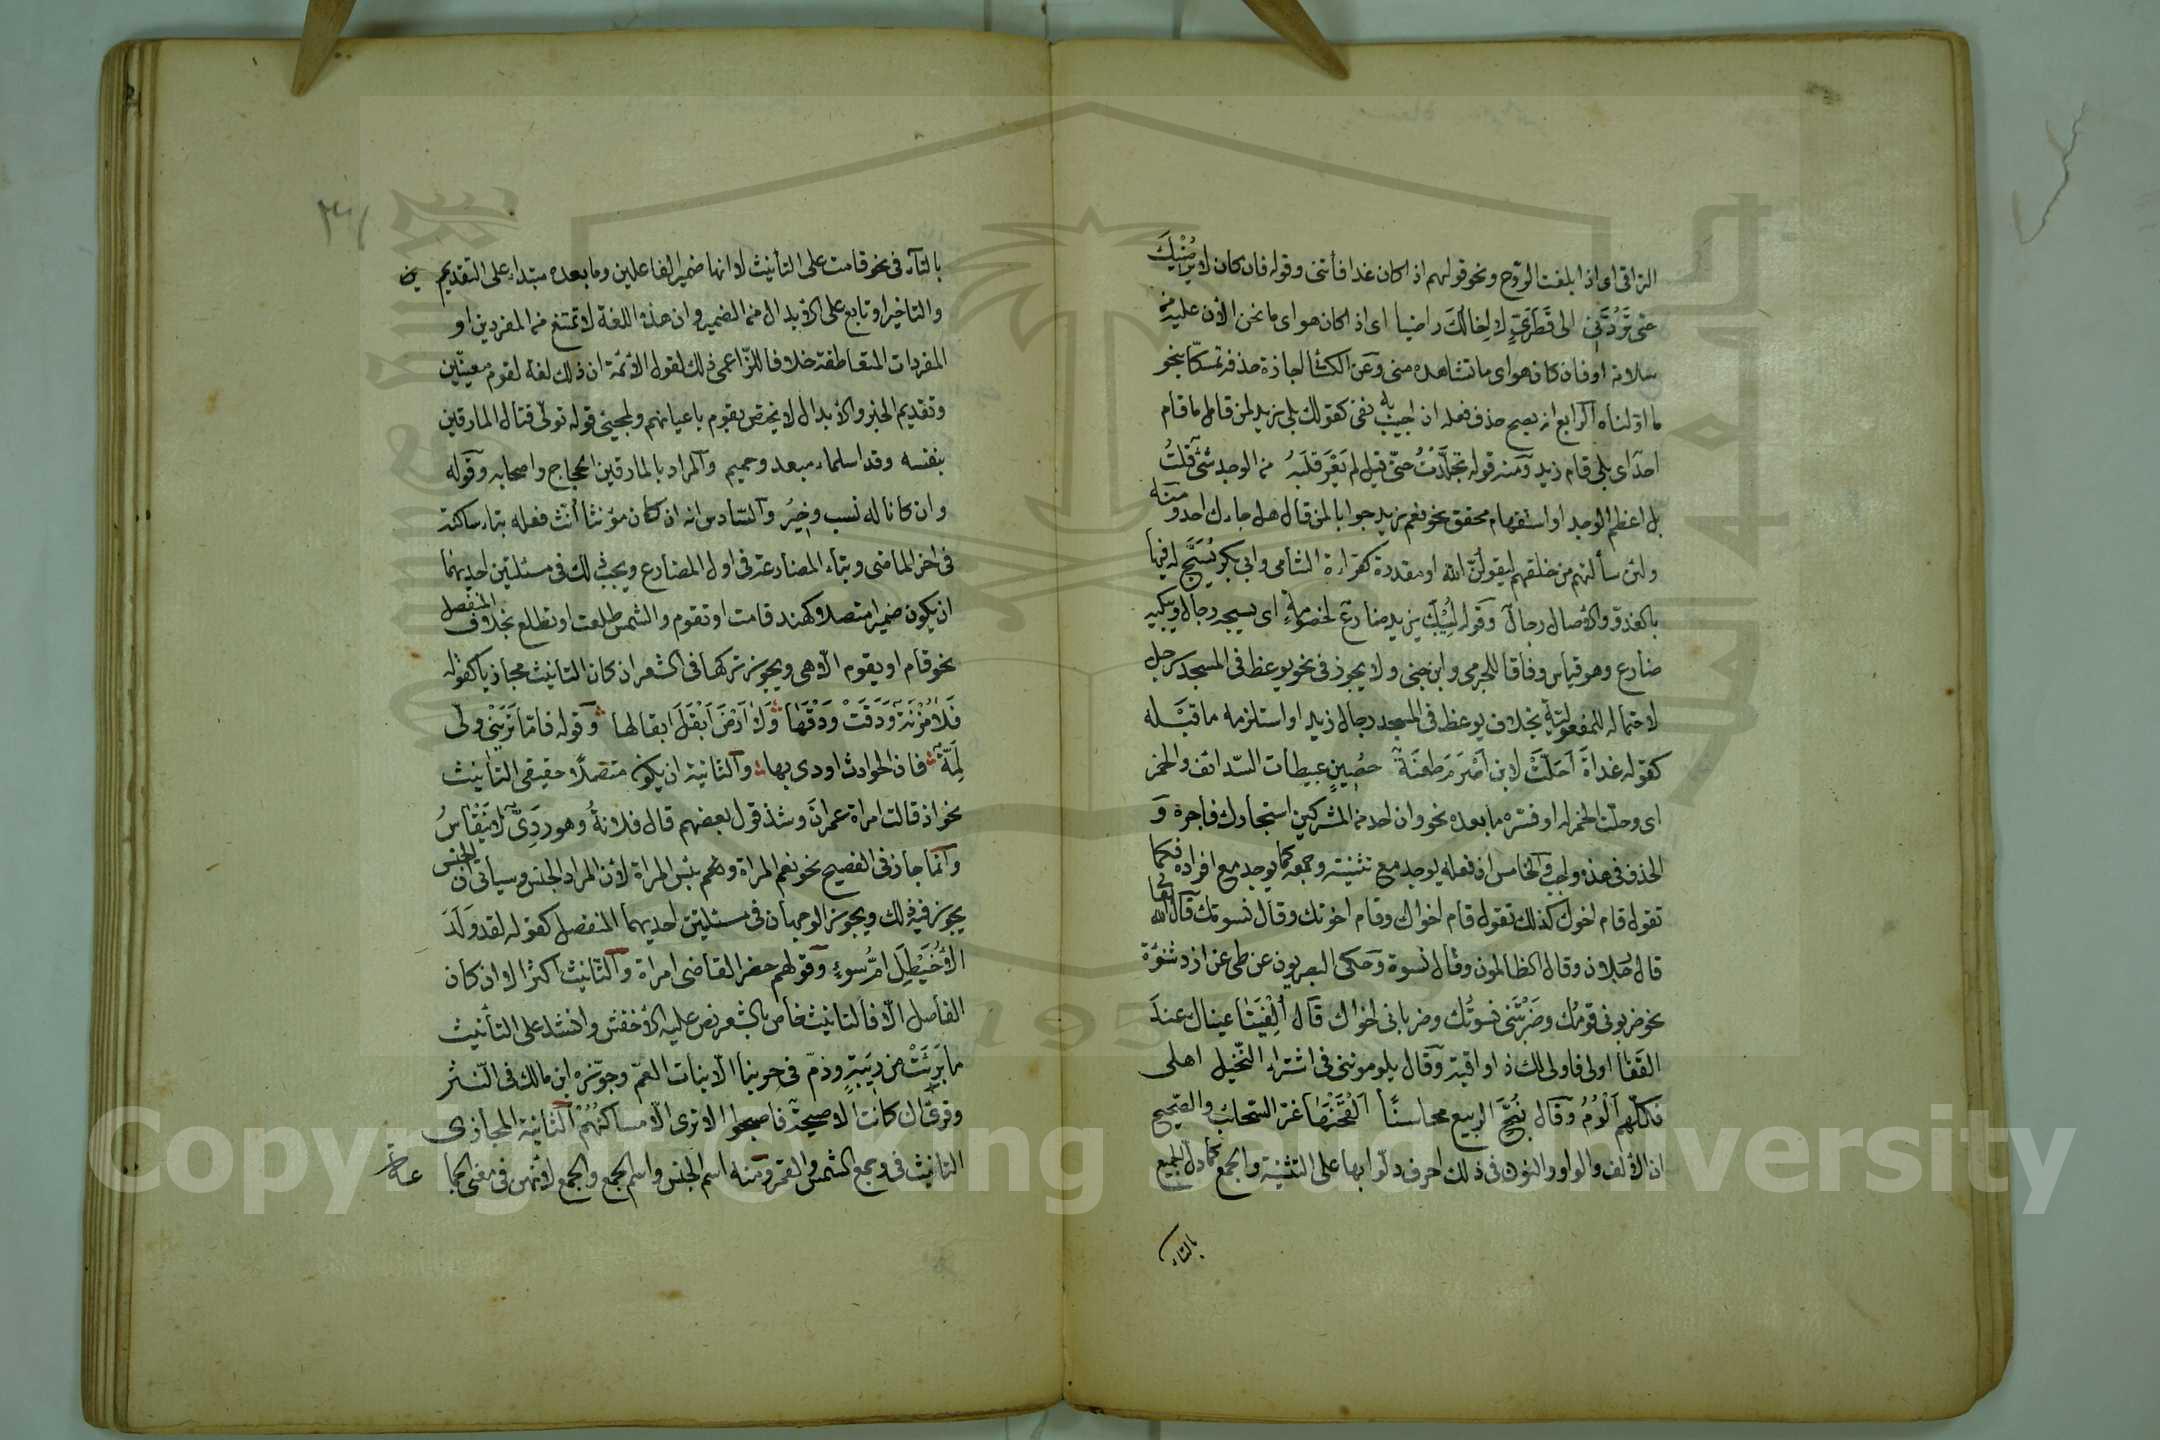 التراقى اى اذا بلغت الروح ونحو قولهم اذا كان غدا فأتنى وقوله فان كان لا يرضيك
حتى تردنى الى قطرى لا اخالك راضيا اى اذا كان هو اى ما نحن الان عليه من
سلامة او فان كان هو اى ما تشاهده منى وعن الكسائى اجازة حذفه تمسكا بنحو
ما اولناه الرابع انه يصح حذف فعله ان اجيب به نفى كقولك بلى زيد لمن قال ما قام
احد اى بلى قام زيد ومنه قوله تجلدت حتى قيل لم يعر قلبه من الوجد شئ قلت
بل اعظم الوجد او استفهام محقق نحو نعم زيد جوابا لمن قال هل جاءك احد ومنه
ولئن سألتهم من خلقهم ليقولن الله او مقدر كقراءة الشامى وابى بكر يسبح له فيها
بالغدو والاصال رجال وقوله ليبك يزيد ضارع لخصومة اى يسبحه رجال ويبكيه
ضارع وهو قياس وفاقا للجرمى وابن جنى ولا يجوز فى نحو يوعظ فى المسجد رجل
لاحتماله للمفعولية بخلاف يوعظ فى المسجد رجال زيد او استلزمه ما قبله
كقوله غداة احلت لابن اصرم طعنة حصين عبيطات السدائف والخمر
اى وحلت الخمر له او فسره ما بعده نحو وان احد من المشركين استجارك فاجره و
الحذف فى هذه واجب والخامس ان فعله يوحد مع تثنيته وجمعه كما يوحد مع افراده فكما
تقول قام اخوك كذلك تقول قام اخواك وقام اخوتك وقال نسوتك قال الله تعالى
قال رجلان وقال الظالمون وقال نسوة وحكى البصريون عن طى عن ازد شنؤة
نحو ضربونى قومك وضربننى نسوتك وضربانى اخواك قال الفيتا عيناك عند
القفا اولى فاولى لك ذا واقية وقال يلوموننى فى اشتراء النخيل اهلى
فكلهم الوم وقال نتج الربيع محاسنا القحنها غر السحائب والصحيح
ان الالف والواو والنون فى ذلك احرف دلوا بها على التثنية والجمع كما دل الجميع
بالتاء
بالتاء فى نحو قامت على التأنيث لا انها ضمير الفاعلين وما بعده مبتداء على التقديم
والتاخير او تابع على الابدال من الضمير وان هذه اللغة لا تمتنع من المفردين او
المفردات المتعاطفة خلافا لزاعمى ذلك لقول الائمة ان ذلك لغة لقوم معينين
وتقديم الخبر والابدال لا يختص بقوم باعيانهم ولمجئ قوله تولى قتال المارقين
بنفسه وقد اسلماه مبعد وحميم والمراد بالمارقين الحجاج واصحابه وقوله
وان كانا له نسب وخير والسادس انه ان كان مؤنثا أنث فعله بتاء ساكنة
فى اخر الماضى وبتاء المضارعة فى اول المضارع ويجب ذلك فى مسئلتين احديهما
ان يكون ضميرا متصلا كهند قامت او تقوم والشمس طلعت او تطلع بخلاف المنفصل
نحو قام او يقوم الا هى ويجوز تركها فى الشعر ان كان التانيث مجازيا كقوله
فلا مزنة ودقت ودقها ولا ارض ابقل ابقالها وقوله فاما ترينى ولى
لمة فان الحوادث اودى بها والثانية ان يكون متصلا حقيقى التأنيث
نحو اذ قالت امراة عمران وشذ قول بعضهم قال فلانة وهو ردئ لا ينقاس
وانما جاز فى الفصيح نحو نعم المراة وبئس المراة لان المراد الجنس وسياتى ان الجنس
يجوز فيه ذلك ويجوز الوجهان فى مسئلتين احديهما المنفصل كقوله لقد ولد
الاخيطل ام سوء وقولهم حضر القاضى امراة والتانيث اكثر الا ان كان
الفاصل الا فالتانيث خاص بالشعر نص عليه الاخفش وانشد على التأنيث
ما برئت من ريبة وذم فى حربنا الا بنات العم وجوزه ابن مالك فى النثر
وقرئ ان كانت الا صيحة فاصبحوا لا ترى الا مساكنهم الثانية المجازى
التانيث فى وجمع الشمس والقمر ومنه اسم الجنس واسم الجمع والجمع لانهن فى معنى الجما
عة
Copyright © King Saud University
1957